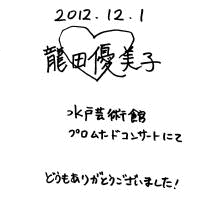 2012.12.1
龍田優美子
水戸芸術館
プロムナードコンサートにて
どうもありがとうございました!